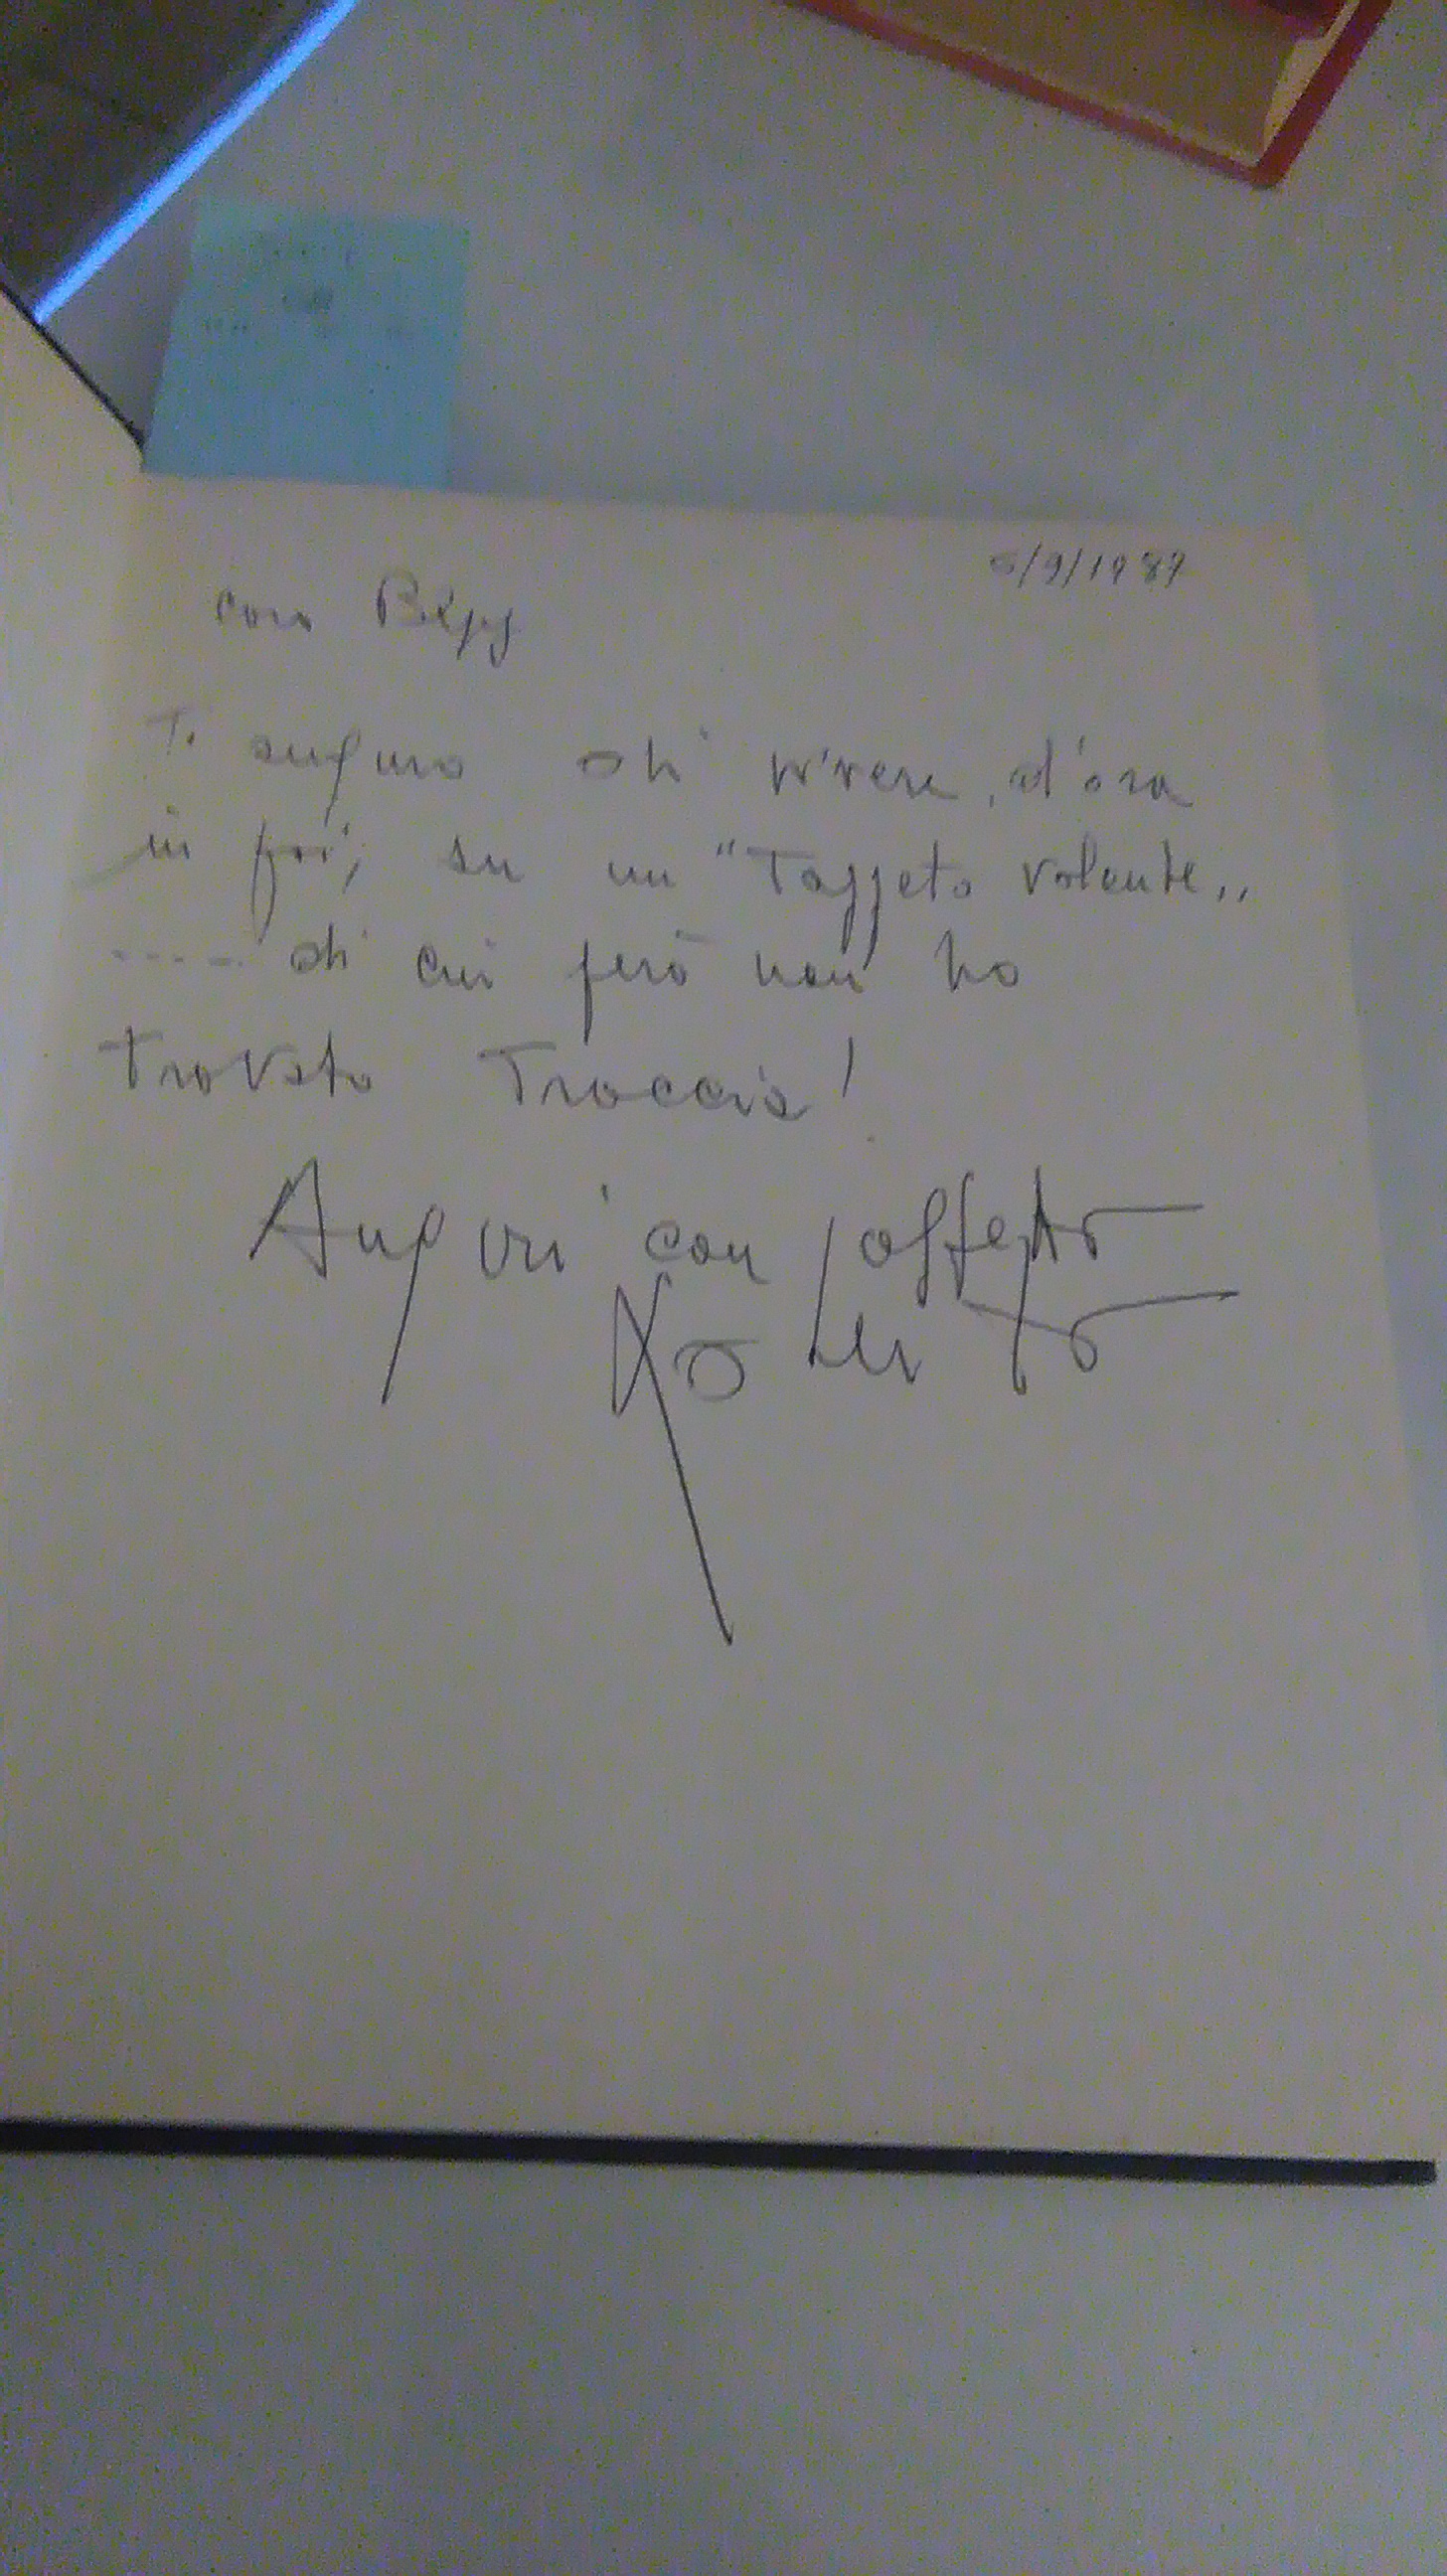 6/9/1989
caro Beppe
Ti auguro di vivere, d'ora
in poi, su un "Tappeto volante"
..... di cui però non ho
Trovato Traccia!
Auguri con affetto
Roberto